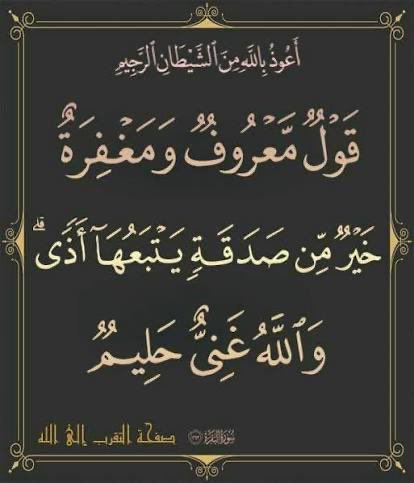 أَعُوذُ بِاللَّهِ مِنَ ٱلشَّيْطَانِ ٱلرَّجِيمِ
قَوْلٌ مَّعْرُوفٌ وَمَغْفِرَةٌ
خَيْرٌ مِّن صَدَقَةٍ يَتْبَعُهَآ أَذًى ۗ
وَٱللَّهُ غَنِىٌّ حَلِيمٌ
سُورَةُ البَقَرَةِ ٢٦٣ صفحة التقرب إلى الله